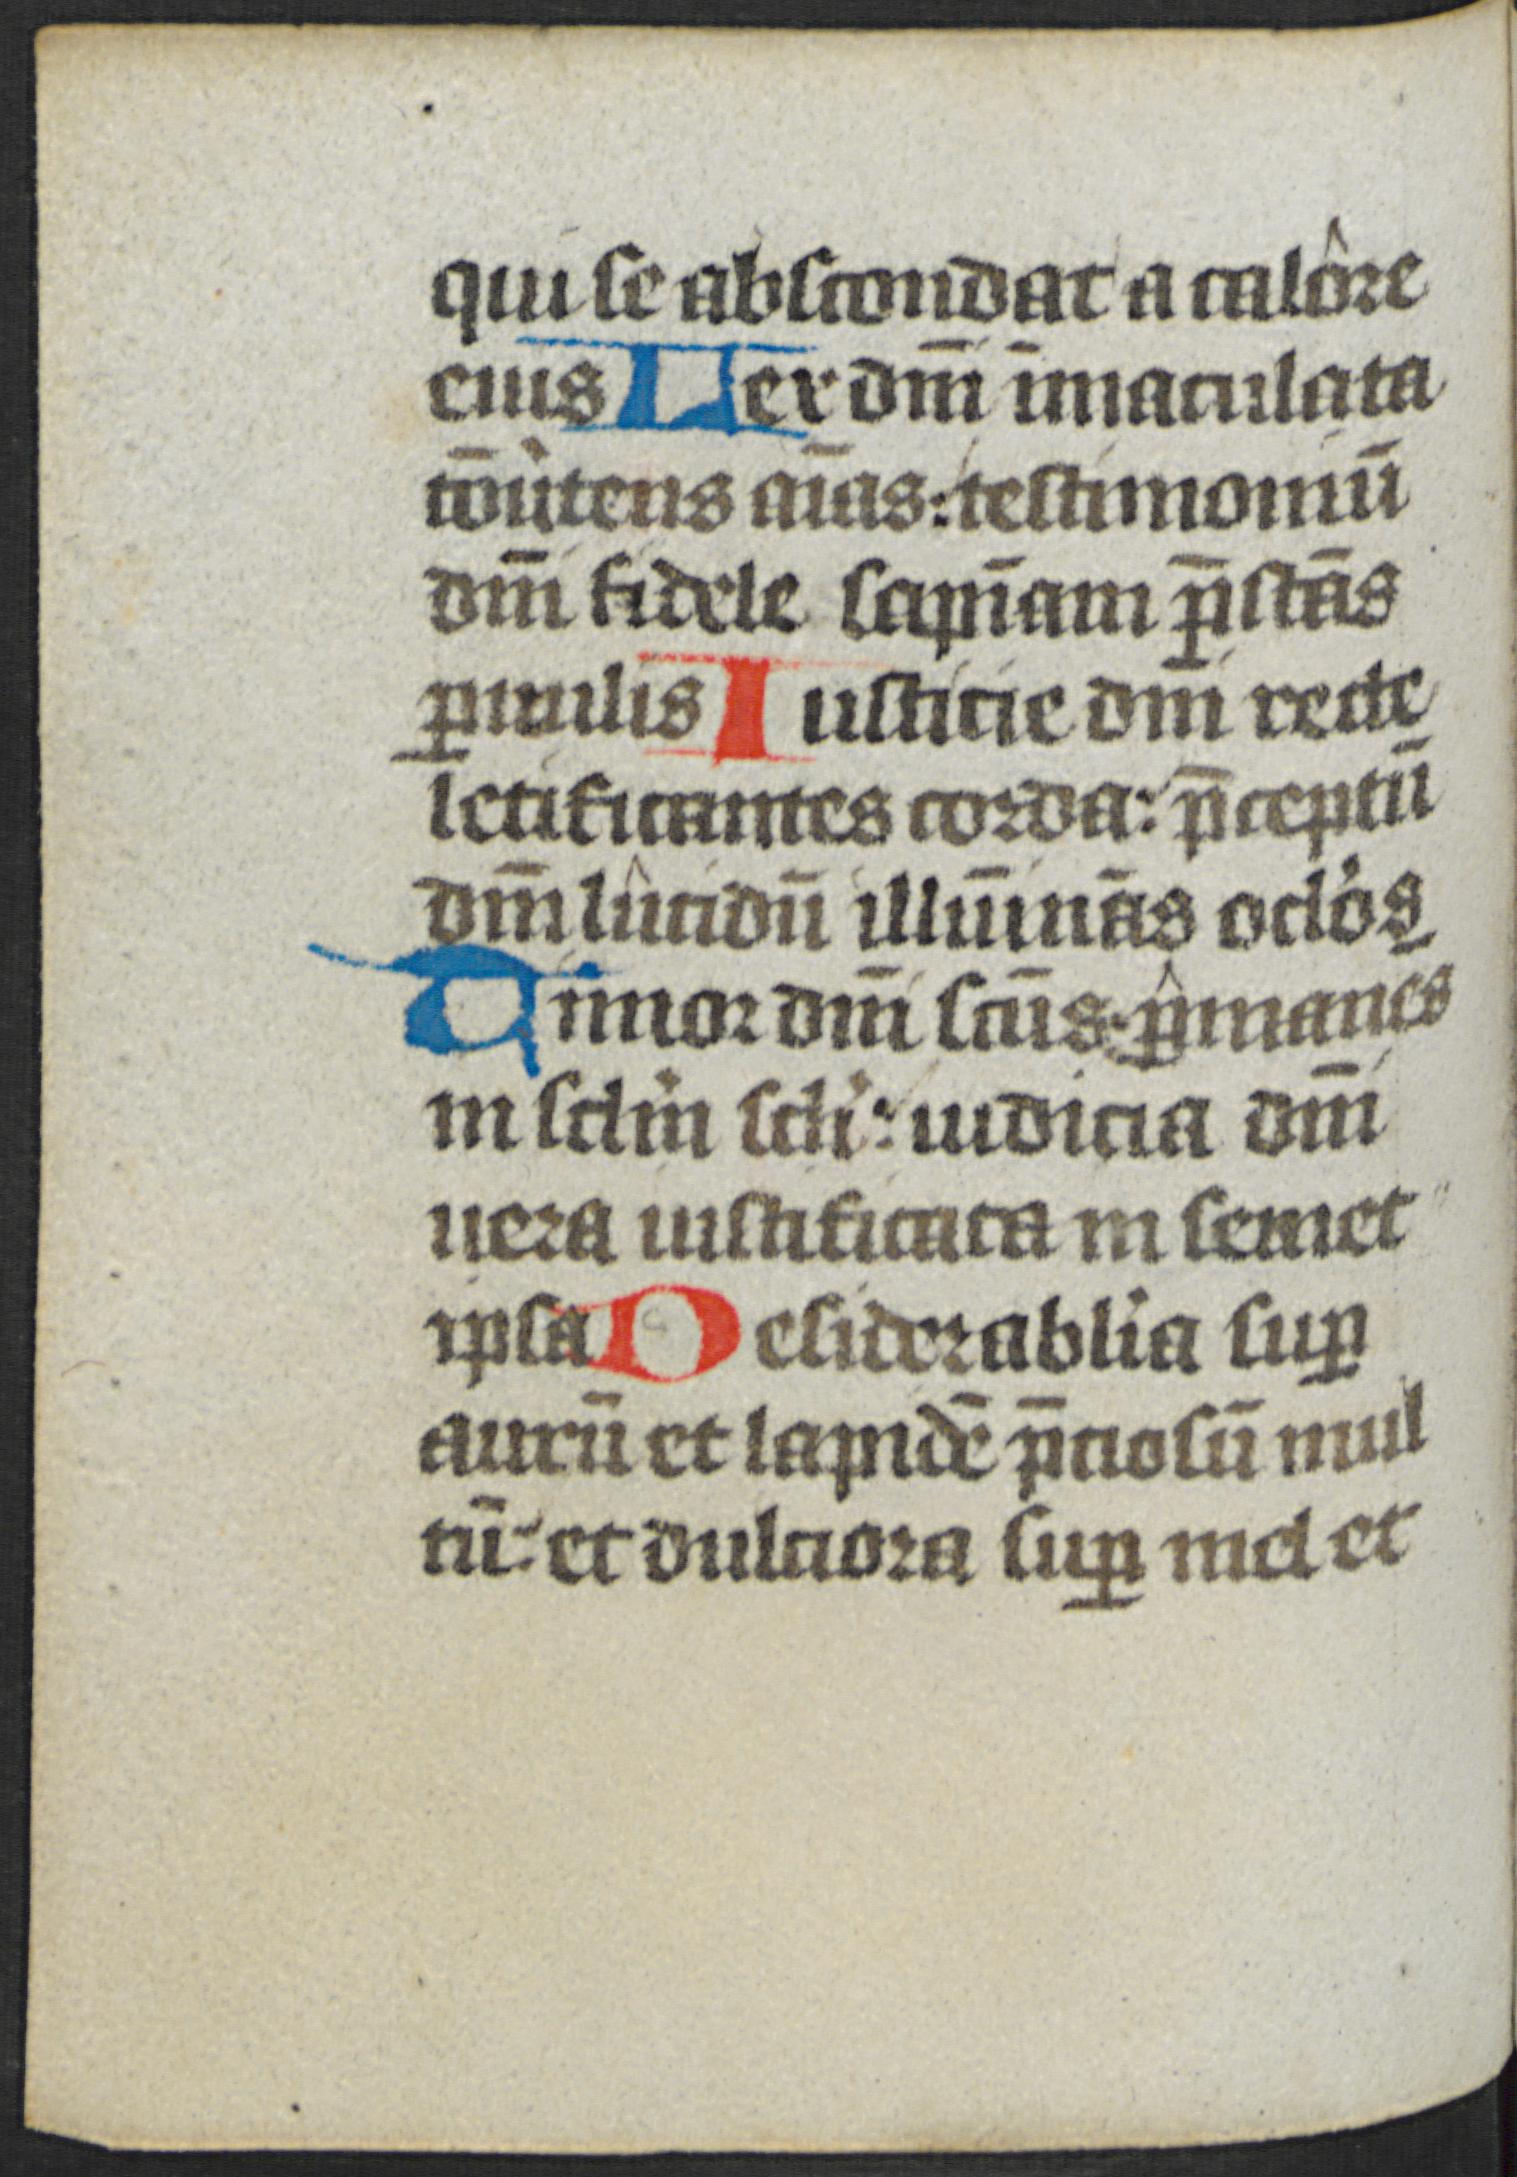 qui se abscondat a calore
eius Lex dm̄i īmaculata
cōu̓tens aīas: testimoniū
dm̄i fidele sapīam p̄stās
ꝑuulis Iusticie dm̄i recte
letificantes corda: p̄ceptū
dm̄i lucidū illūinās oclo̓s
Timor dm̄i scūs ꝑmanēs
in sclm̓ scli̓: iudicia dm̄i
uera iustificata in semet
ipsa Desiderabli̓a suꝑ
aurū et lapidē p̄ciosū mul
tū: et dulciora suꝑ mel et